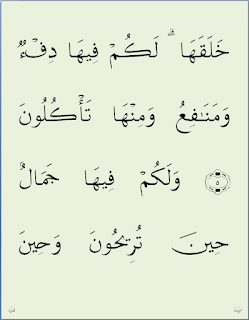 خَلَقَهَا ۗ لَكُمْ فِيهَا دِفْءٌ
وَمَنَـٰفِعُ وَمِنْهَا تَأْكُلُونَ
۝٥ وَلَكُمْ فِيهَا جَمَالٌ
حِينَ تُرِيحُونَ وَحِينَ